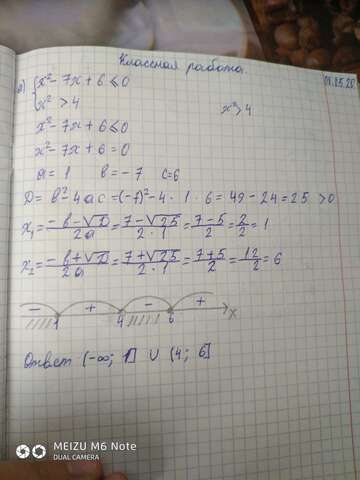 Классная работа. 01.05.20
а) { x² - 7x + 6 ≤ 0
x² > 4
x² > 4
x² - 7x + 6 ≤ 0
x² - 7x + 6 = 0
a = 1 b = -7 c = 6
D = b² - 4ac = (-7)² - 4 · 1 · 6 = 49 - 24 = 25 > 0
x₁ = (-b - √D)/2a = (7 - √25)/(2 · 1) = (7 - 5)/2 = 2/2 = 1
x₂ = (-b + √D)/2a = (7 + √25)/(2 · 1) = (7 + 5)/2 = 12/2 = 6
- + - +
1 4 6 x
Ответ (-∞; 1] ∪ (4; 6]
MEIZU M6 Note
DUAL CAMERA